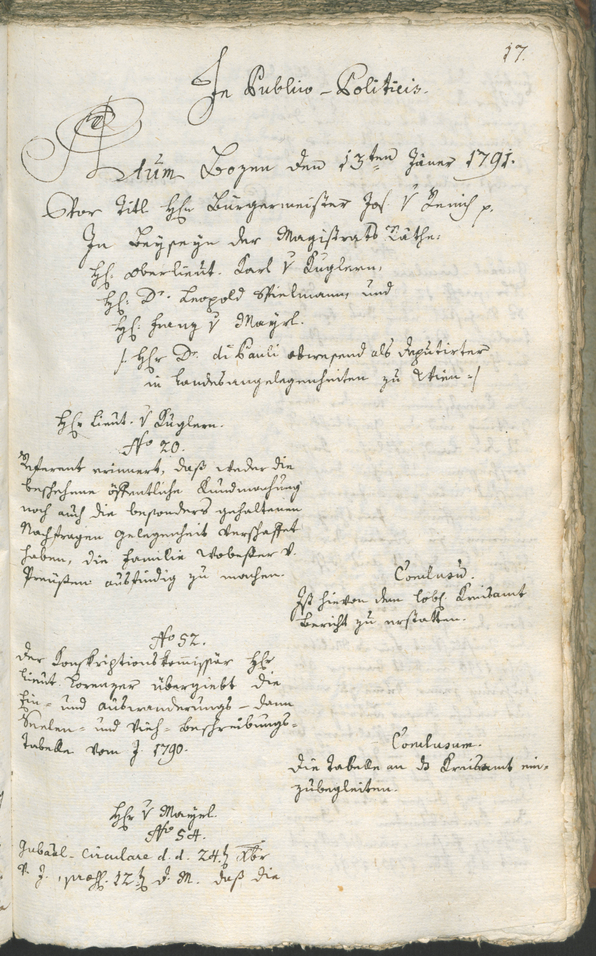 17.
In Publico-Politicis.
Actum Bozen den 13ten Jäner 1791.
Vor Titl Hhn Bürgermeister Jos. v Zenich p.
In Beyseyn der Magistrats Räthe:
Hh: Oberlieut. Karl v Kuglern,
Hh: Dr. Leopold Spielmann, und
Hh: Franz v Mayrl.
/: Hhr Dr. di Pauli abwesend als deputirter
in Landesangelegenheiten zu Wien :/
Hhr Lieut. v Kuglern.
No 20.
Referent erinnert, daß weder die
beschehene öffentliche Kundmachung
noch auch die besonders gehaltenen
Nachfragen gelegenheit verschaffet
haben, die Familie v.
Preußen ausfindig zu machen.
Conclusum.
Ist hievon dem lobl. Kreisamt
Bericht zu erstatten.
No 52.
Der Konskriptionskommissär Hhr
Lieut. Lorenzer übergiebt die
Ein- und Auswanderungs- dann
Seelen- und Vieh-Beschreibungs-
Tabelle vom J. 1790.
Conclusum.
Die Tabelle an d Kreisamt ein-
zubegleiten.
Hhr v Mayrl.
No 54.
Gubäal-Circulare d. d. 24t Xbr
v. J. , 12t d. M. daß die